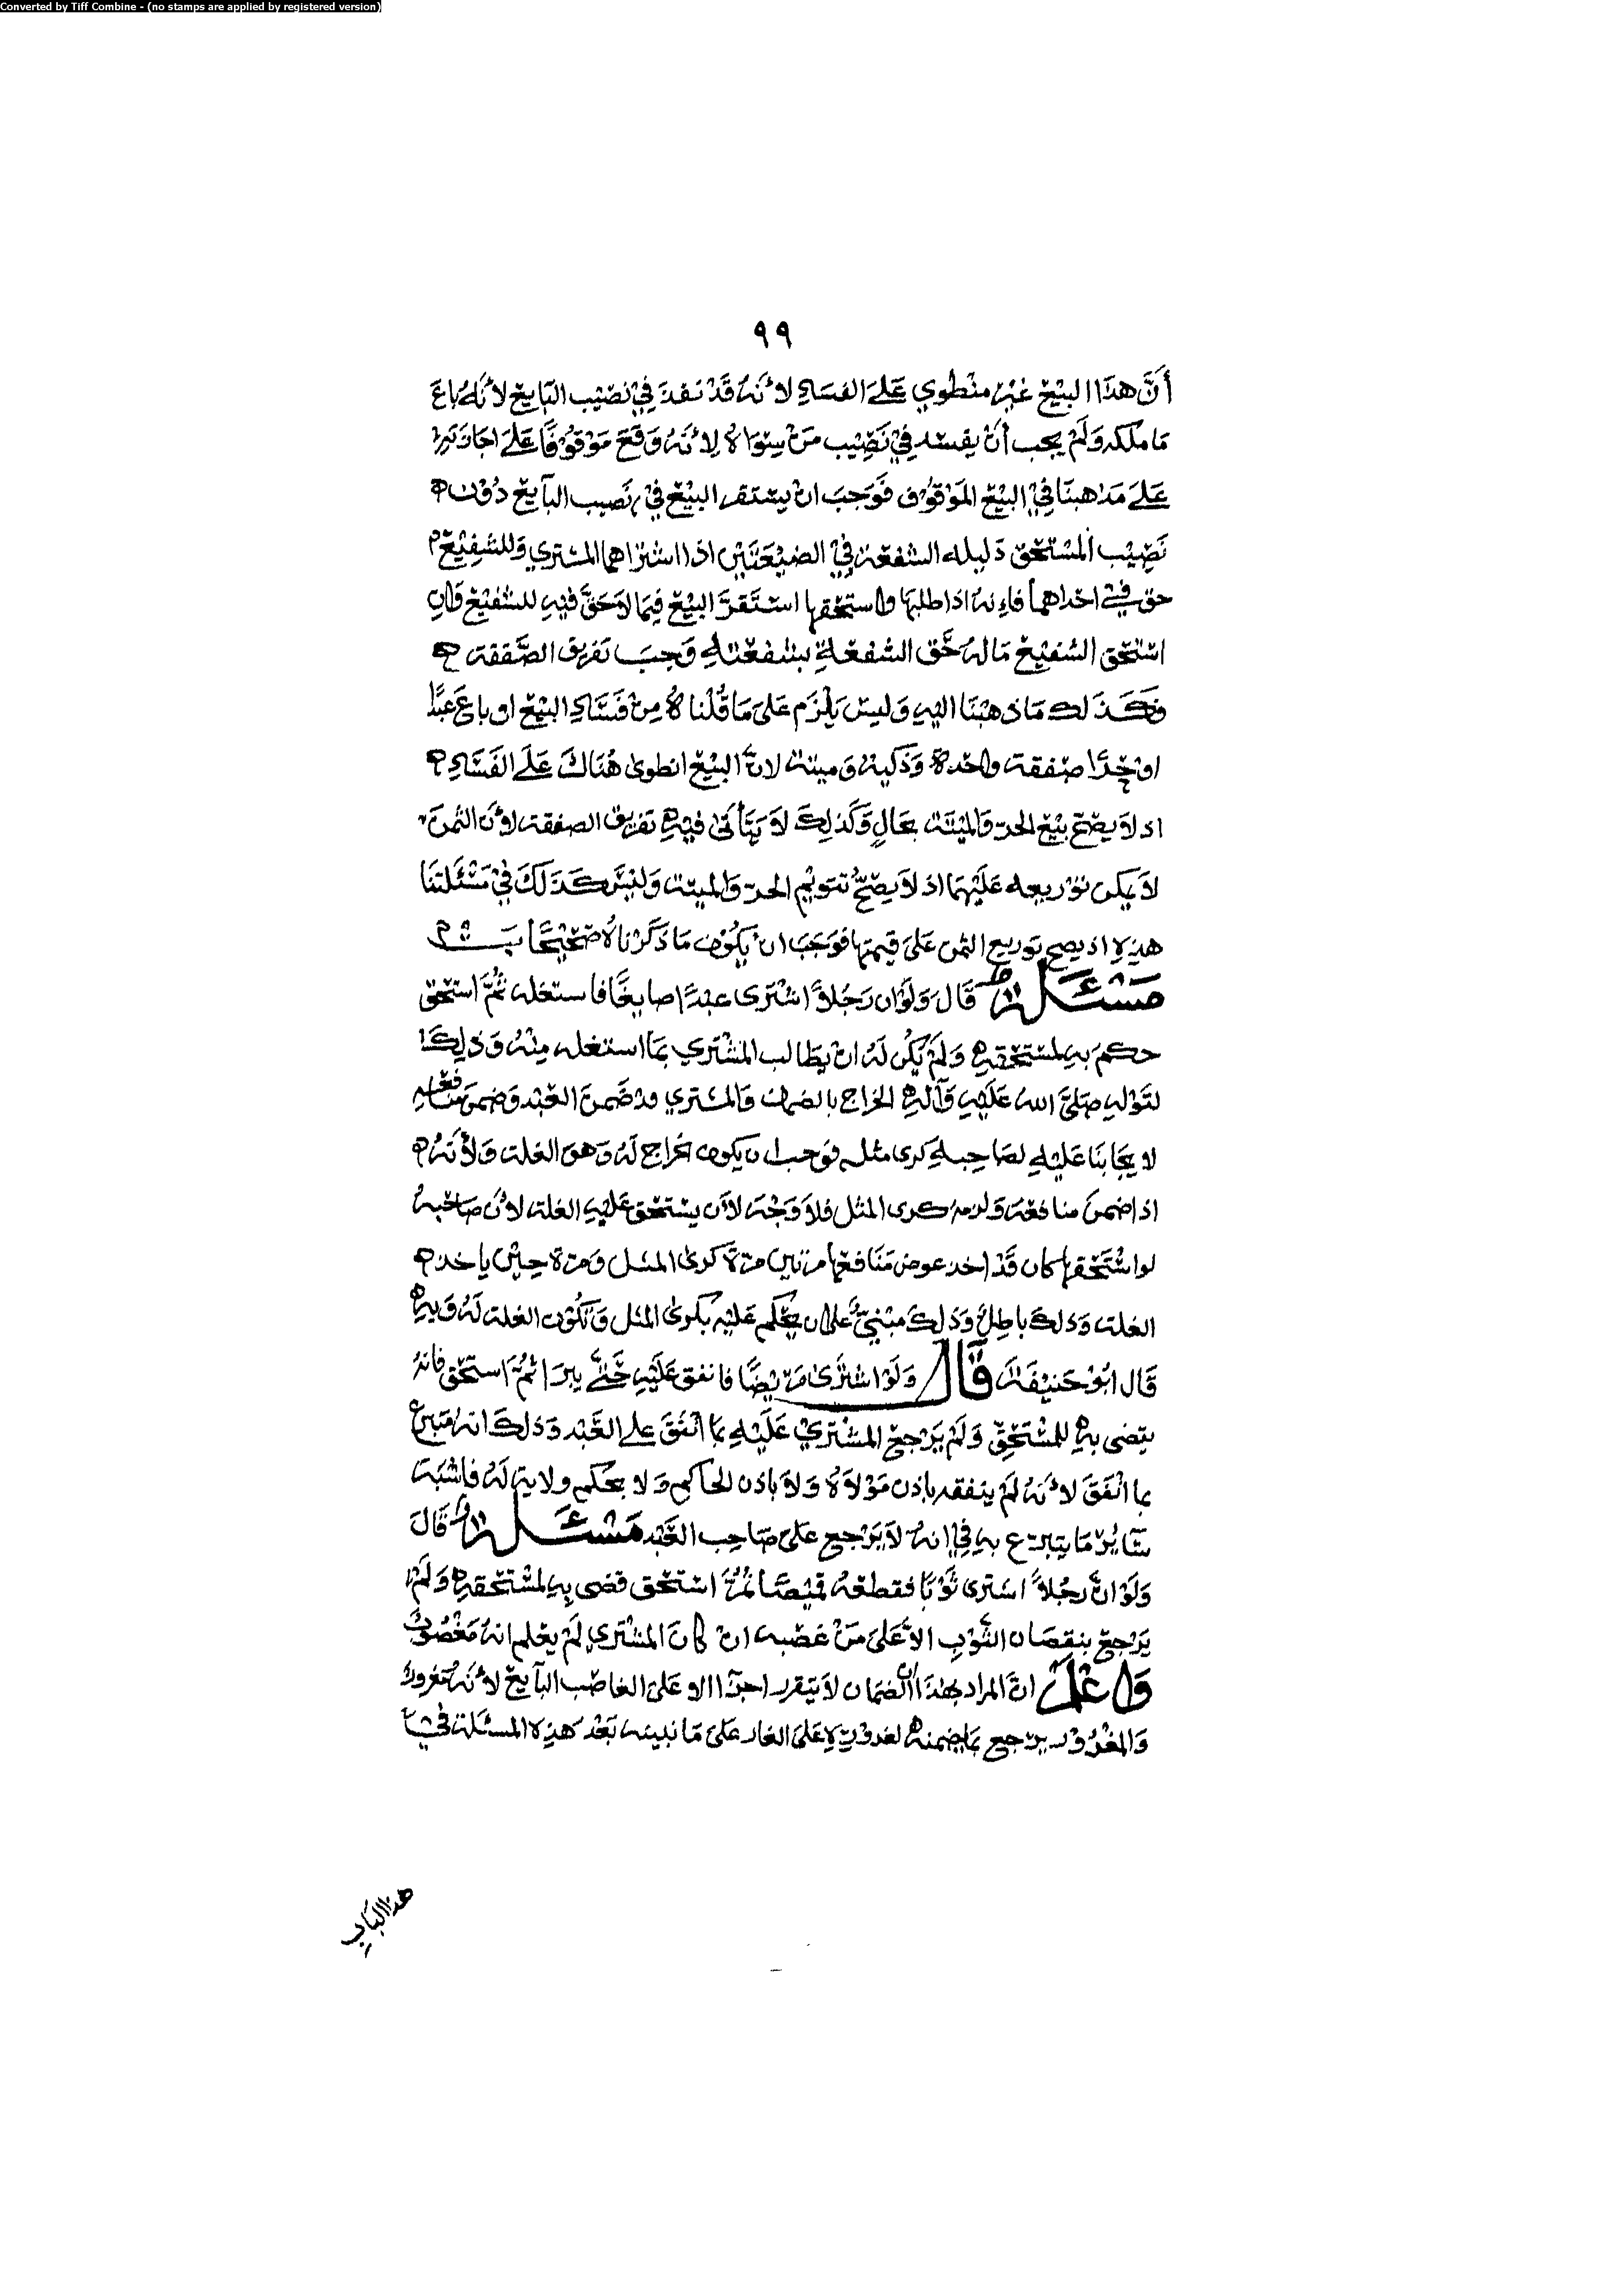 Converted by Tiff Combine - (no stamps are applied by registered version)
٩٩
أنَّ هذا البيع غير منطوي عَلَى الفساد لأنه قَدْ نفذ في نصيب البَايع لأنه باع
مَا ملكه وَلَمْ يجب أنْ يفسد فِي نَصِيب مَنْ سِوَاهُ لأنه وَقَعَ مَوْقوُفًا عَلَى اجازته
عَلَى مَذاهبنَا فِي البيع المَوْقوُف فَوَجَبَ انْ يستقر البيْع في نصيب البآيع دُوْن
نَصِيْب المسْتحق دَليله الشفعة فِي الضيْعَتَيْن اذا اشتراهما المشتري وَللشفِيْع
حق في احداهما فاِنه اذا طلبها واستحقها استَقرَّ البَيْع فِيمَا لاَ حَقَّ فيهِ للشفيْع وَانِ
استحق الشفيْع مَا لهُ حَق الشفعةِ بشفعتهِ وَجبَ تفريق الصَّفقة
فكَذَلك مَا ذهبْنَا اليهِ وَليسَ يَلْزَم عَلَى مَا قُلْناهُ مِنْ فَسَادِ البيْع لو باعَ عَبْدًا
اوْ حُرًا صفقة واحدة وَذكية وَميتة لانَّ البَيْع انطوى هُنَاكَ عَلَى الفَسَادِ
اذ لاَ يصحّ بيْع الحرّ وَالميْتَة بحَالٍ وَكَذلِكَ لاَ يَتَأتَى فيْهِ تفريق الصفقة لأن الثمنَ
لاَ يمكن توْزيعه عَلَيْهمَا اذ لاَ يَصِحُّ تقويْم الحرّ وَالميتة وَليْسَ كذَلكَ فِيْ مَسْئَلتِنَا
هذِهِ اذ يصح توزيع الثمن عَلَىَ قيمتها فوَجَبَ انْ يَكُوْن مَا ذَكَرْناهُ صَحِيْحًا
مَسْئَلة قَالَ وَلَوْ ان رَجُلاً اشْتَرَى عبدًا صايغًا فاستغله ثُمَّ استحق
حكمَ بهِ لمستحقهِ وَلمْ يَكُنْ لهُ انْ يطَالب المشْتَري بمَا استغله مِنْهُ وَذلِكَ
لقَوْلهِ صَلىَّ اللهُ عَلَيْهِ وَآلهِ الخراج بالضمان وَالمشتري قد ضَمنَ العَبْد وَضمنَ منافعه
لايجَابنَا عَليْهِ لصَاحِبهِ كرى مثله فوَجب ان يكون الخراج لهُ وَهو الغلة وَلأنهُ
اذا ضمنَ منافعهُ وَلزمهُ كرى المثل فلاَ وَجْهَ لأن يسْتحق عَليْهِ الغلة لأن صَاحبهُ
لو اسْتَحقها كان قَدْ اخذ عوض مَنَافعها مرّتين مرّةً كرى المثل وَمرّة حِيْن ياخذ
الغلة وَذلكَ باطِلٌ وَذَلكَ مبْنيٌّ عَلى ان يحكم عليْه بكرىَ المثل وَتَكُوْن الغلة لَهُ وَبهِ
قَال ابُوْ حَنيْفة قَالَ وَلَوْ اشترَى مَريْضًا فانفق عَليْهِ حَتَّى يبرَا ثُمَّ استحق فانهُ
يقضى بهِ للمسْتحِقّ وَلَمْ يَرْجع المشْتريْ عَلَيْهِ بمَا انْفَقَ عَلى العَبْد وَذلكَ انهُ متبرع
بما انْفَقَ لأنهُ لَمْ ينفقه باذن مَوْلاَهُ وَلاَ باذن الحَاكم وَلا بحكم ولايةٍ لهُ فاشبهَ
سَايرْ مَا يتبرّع بهِ فِي انهُ لاَ يَرْجع عَلَى صَاحِب العَبْد مَسْئَلة قَالَ
وَلَوْ انَّ رجُلاً اشترى ثَوْبًا فقطعهُ قميْصًا ثُمَّ اسْتحق قضى بهِ لمسْتحقهِ وَلَمْ
يَرْجعْ بنقصَان الثَّوْبِ الاَّ عَلىَ مَنْ غصبه انْ كَانَ المشْتري لَمْ يعْلم انهُ مَغْصُوْب
وَاعْلَمْ انَّ المراد بهَذا ان الضمَان لاَ يتقرر اخرًا الا عَلىَ الغاصب البآيع لأنهُ مغرور
وَالمغْرُوْر يرْجع بما يضمنه لغروْرهِ عَلَى الغار عَلىَ مَا نبينه بَعْد هَذِه المسئلة في
هذا الباب